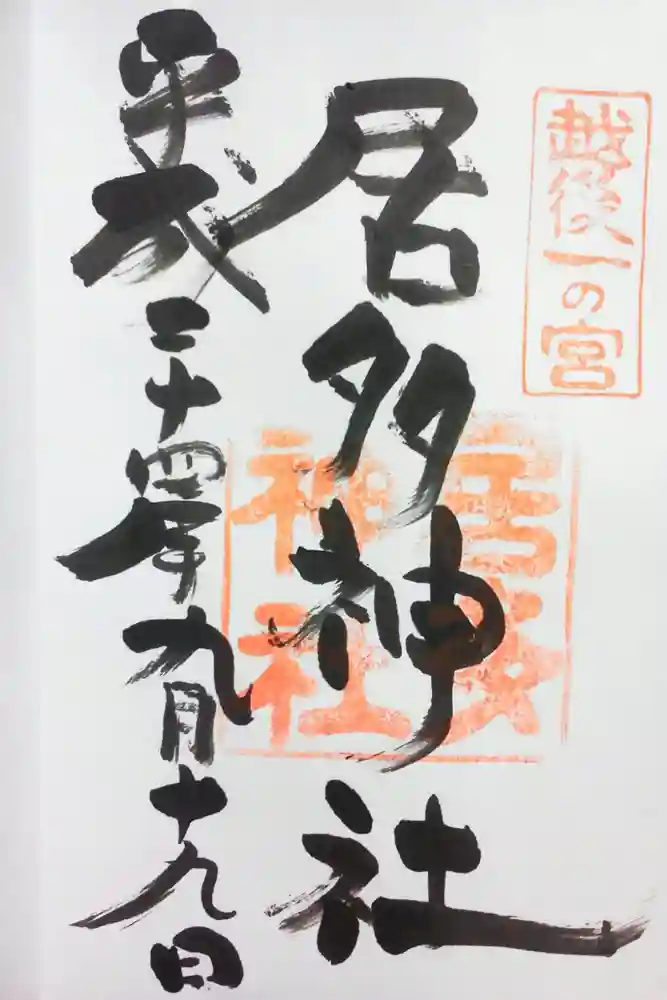 越後一の宮
居多神社
居多神社
平成二十四年九月十九日